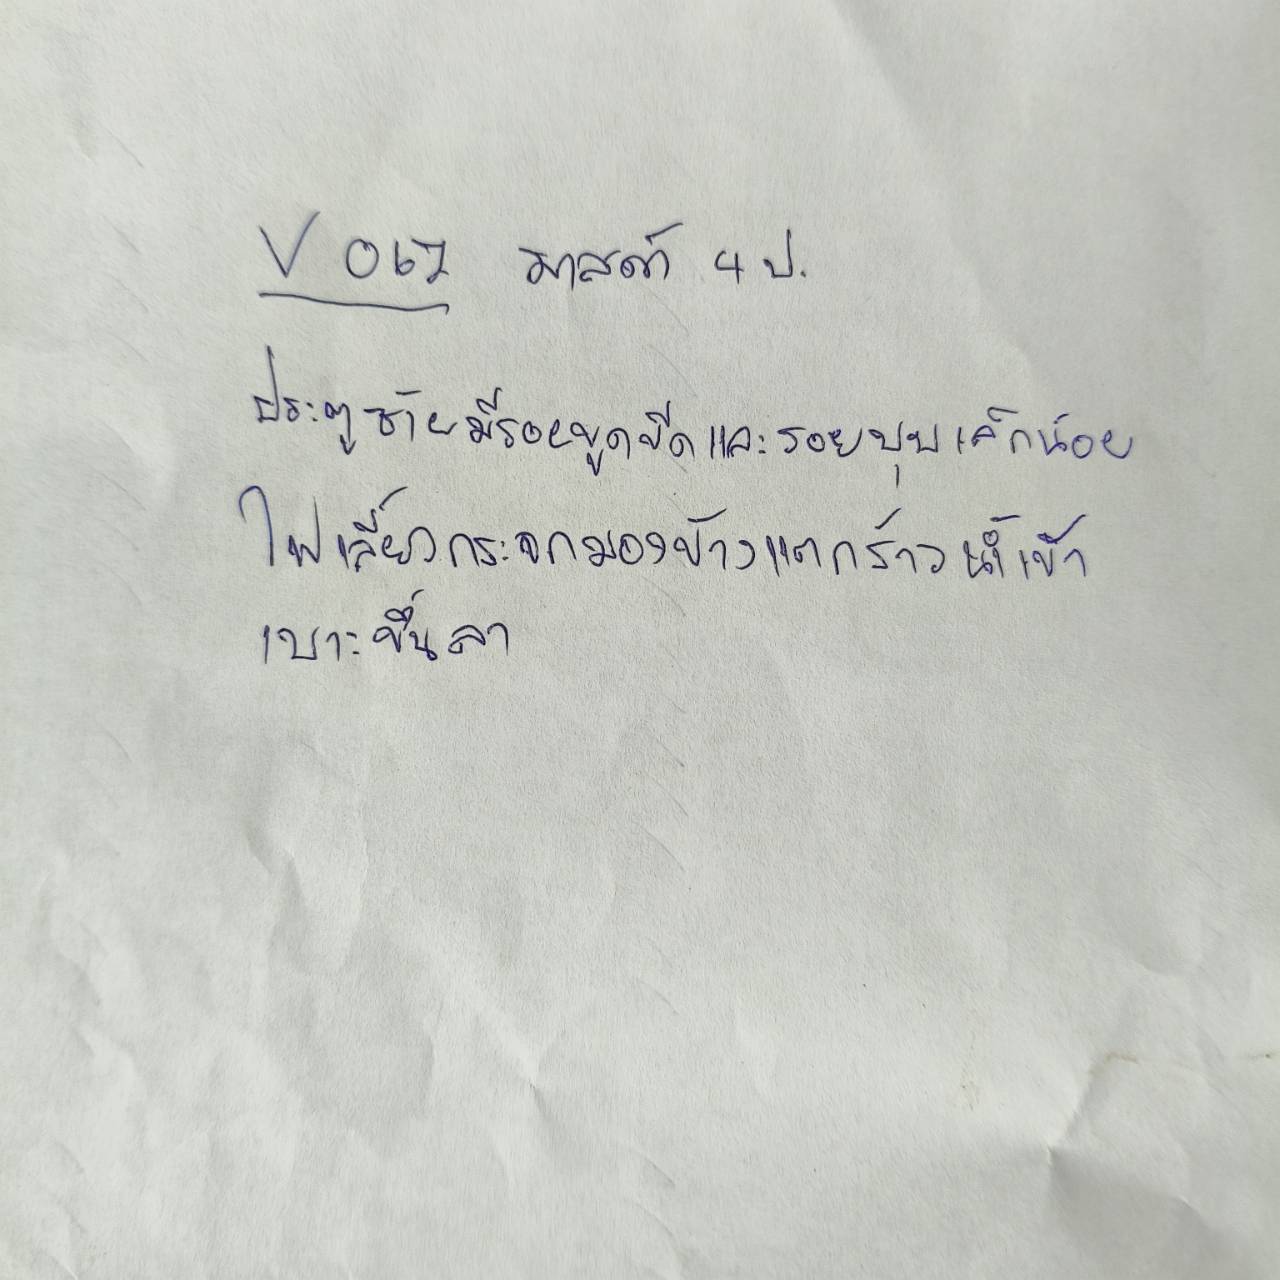 V 067 มาสด้า 4 ป.
ประตูซ้ายมีรอยขูดขีดและรอยบุบเล็กน้อย
ไฟเลี้ยวกระจกมองข้างแตกร้าวน้ำเข้า
เบาะขึ้นลา